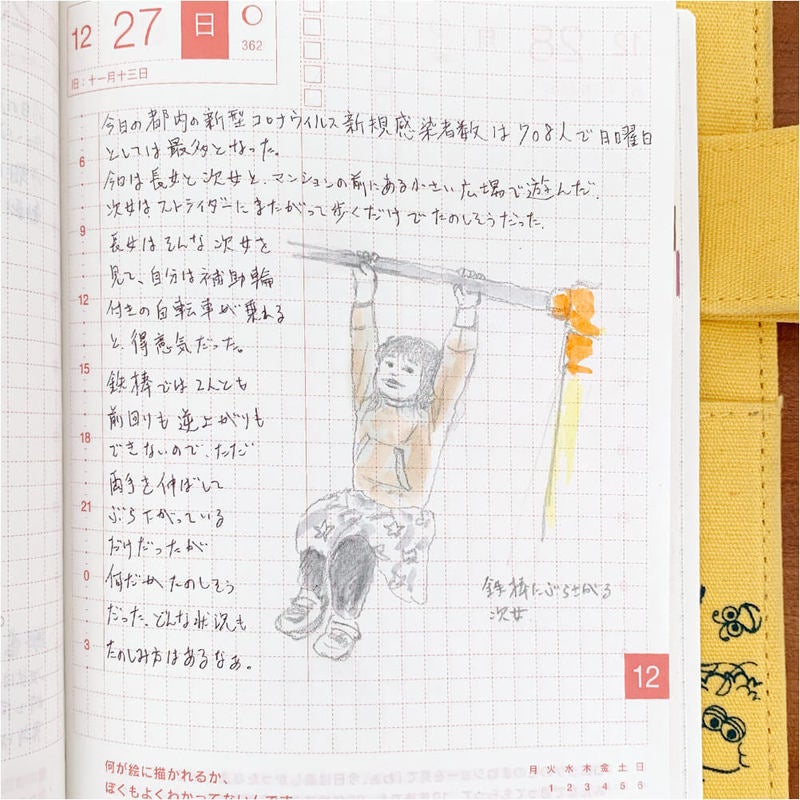 12 27 日
362
旧:十一月十三日
今日の都内の新型コロナウイルス新規感染者数は708人で日曜日
としては最多となった。
今日は長女と次女と、マンションの前にある小さい広場で遊んだ。
次女はストライダーにまたがって歩くだけでたのしそうだった。
長女はそんな次女を
見て、自分は補助輪
付きの自転車が乗れる
と、得意気だった。
鉄棒では2人とも
前回りも逆上がりも
できないので、ただ
両手を伸ばして
ぶら下がっている
だけだったが
何だかたのしそう
だった。どんな状況も
たのしみ方はあるなあ。
6
9
12
15
18
21
0
3
鉄棒にぶら下がる
次女
12
何が絵に描かれるか、
ぼくもよくわかってないんです
月 火 水 木 金 土 日
1 2 3 4 5 6